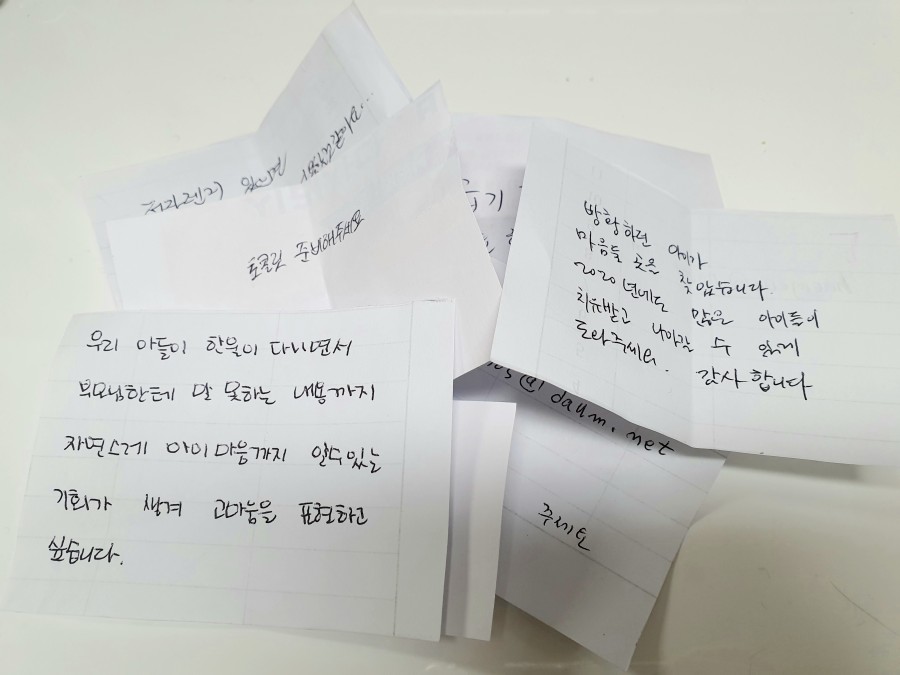 전자렌지 있으면
초콜릿 준비해주세요
습기
방황하던 아이가
마음둘 곳을 찾았습니다.
2020년에도 많은 아이들이
치유받고 나아갈 수 있게
도와주세요. 감사합니다
우리 아들이 한울이 다니면서
부모님한테 말 못하는 내용까지
자연스레 아이 마음까지 알수있는
기회가 생겨 고마움을 표현하고
싶습니다.
@daum.net
주세요